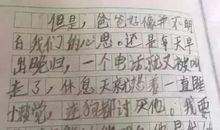 但是，爸爸好像并不明
白我们的心思。还是每天早
出晚归，一个电话就又被叫
走了，休息天就想着一直睡
懒觉，连狗都讨厌他。我要